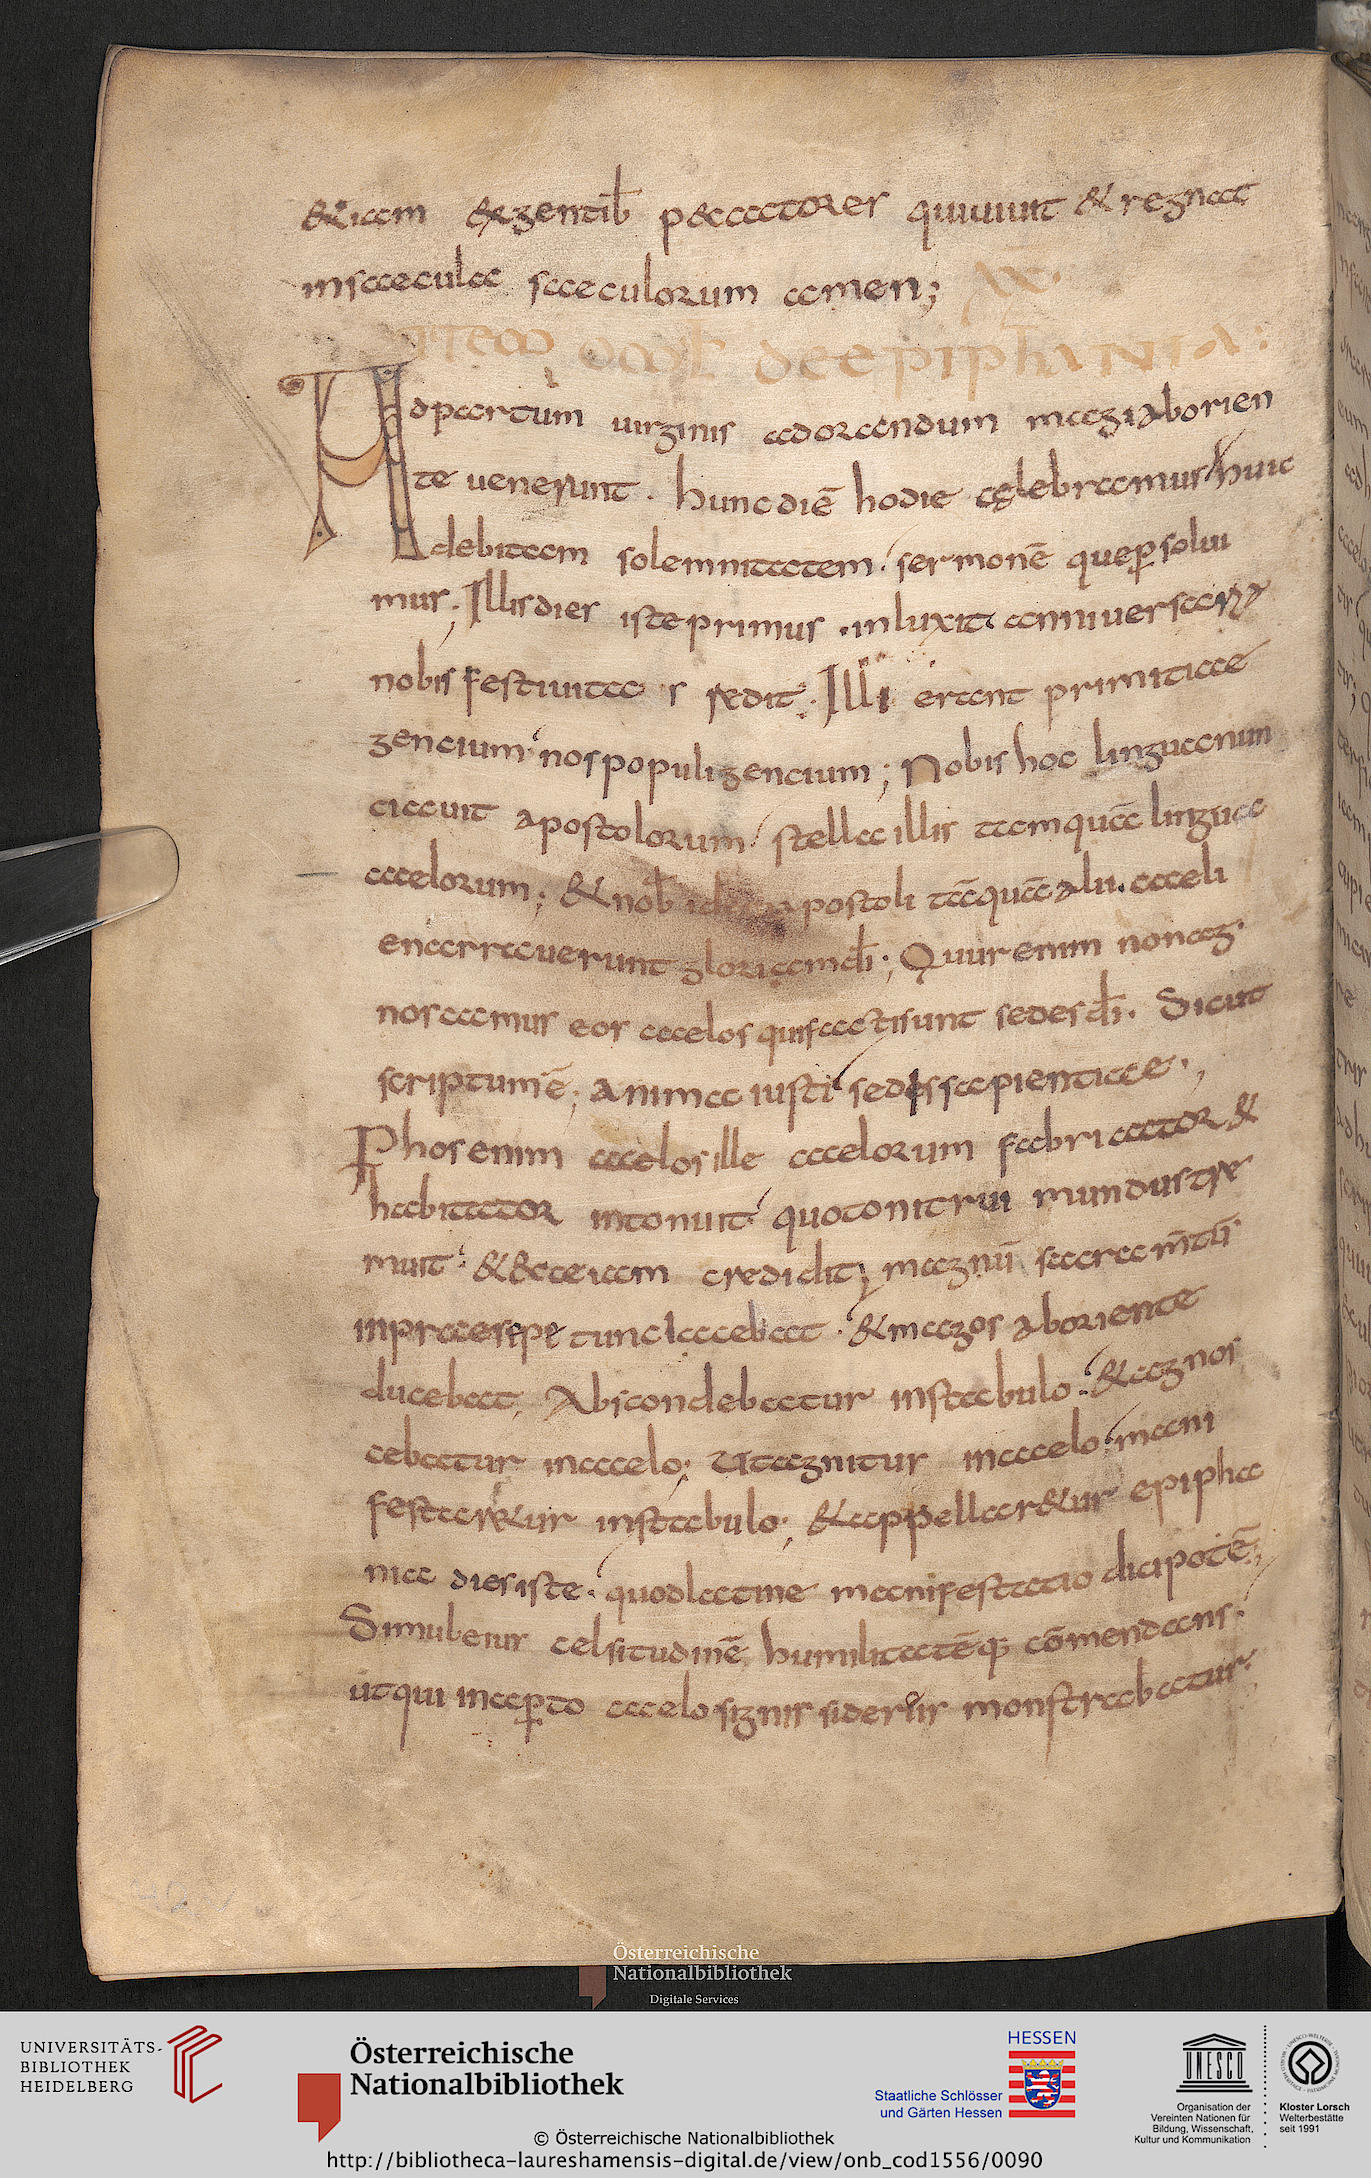 & iam ex gentib peccatores qui uiuit & regnat
in saecula saeculorum amen;
XX.
ITEM OML DE EPIPHANIA:
Ad partum uirginis adorandum magi ab orien
te uenerunt. hunc diē hodie celebramus huic
debitam solemnitatem. sermonē que psolui
mus. Illis dies iste primus. inluxit anniuersaria
nobis festiuita s redit. Illi erant primitiae
gencium nos populi gencium; Nobis hoc lingua nun
ciauit apostolorum stella illis tamquā lingua
caelorum; & nob idem apostoli tāquā alii. caeli
enarrauerunt gloriam di; Quur enim non ag
noscamus eos caelos qui facti sunt sedes di. Sicut
scriptum ē; anima iusti sedis sapientiae.
P hos enim caelos ille caelorum fabricator &
habitator intonuit quo tonitrui mundus tre
muit & ecce iam credidit; magnū sacramtū
in praesepe tunc iacebat. & magos ab oriente
ducebat. Abscondebatur in stabulo. & agnos
cebatur in caelo; Ut agnitur in caelo. mani
festaretur in stabulo; & appellaretur epipha
nia dies iste. quod latine manifestatio dici potē
Simul eius celsitudinē humilitatēq; cōmendans.
ut qui in apto caelo signis sideriis monstrabatur.
Österreichische
Nationalbibliothek
Digitale Services
UNIVERSITÄTS-
BIBLIOTHEK
HEIDELBERG
Österreichische
Nationalbibliothek
HESSEN
Staatliche Schlösser
und Gärten Hessen
UNESCO
Organisation der
Vereinten Nationen für
Bildung, Wissenschaft,
Kultur und Kommunikation
Kloster Lorsch
Welterbestätte
seit 1991
© Österreichische Nationalbibliothek
http://bibliotheca-laureshamensis-digital.de/view/onb_cod1556/0090